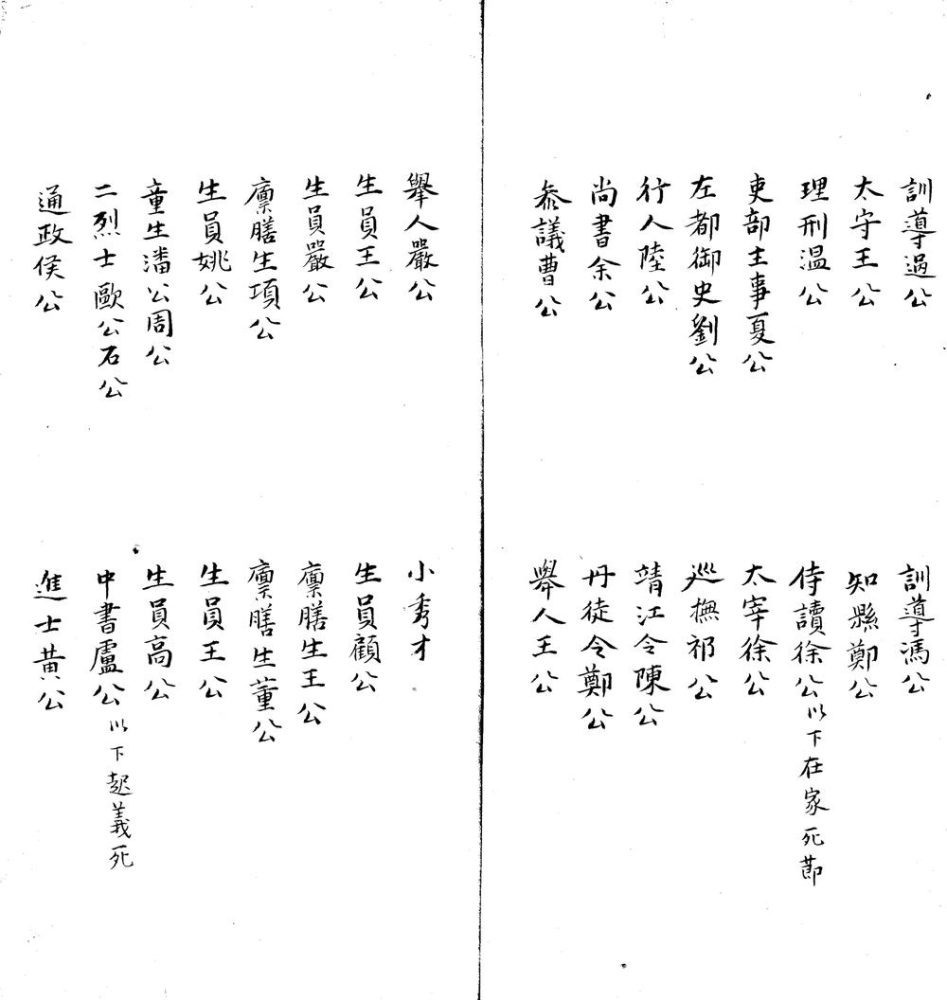 訓導過公 訓導馮公
太守王公 知縣鄭公
理刑温公 侍讀徐公以下在家死莭
吏部主事夏公 太宰徐公
左都御史劉公 巡撫祁公
行人陸公 靖江令陳公
尚書余公 丹徒令鄭公
叅議曹公 舉人王公
舉人嚴公 小秀才
生員王公 生員顧公
生員嚴公 廩膳生王公
廩膳生項公 廩膳生董公
生員姚公 生員王公
童生潘公周公 生員高公
二烈士歐公石公 中書盧公以下起義死
通政侯公 進士黃公